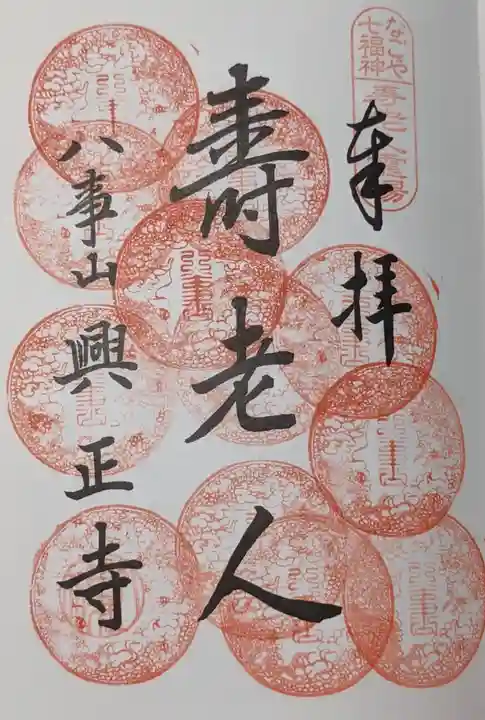 なごや
七福神
寿老人霊場
奉拝
壽老人
八事山興正寺